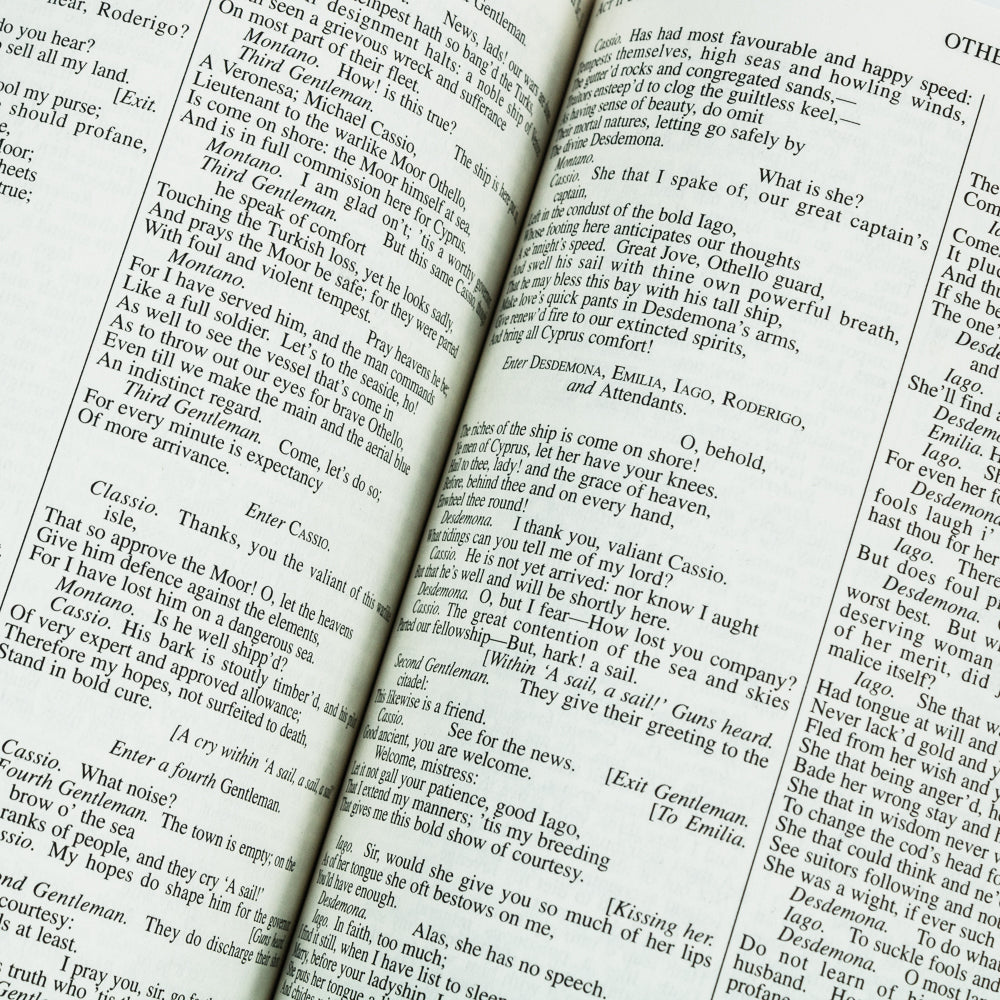 hear, Roderigo?
do you hear?
sell all my land.
[Exit.
ool my purse;
should profane,
Moor;
true;
News, lads! our wars
tempest hath so bang'd the Turks
designment halts; a noble ship of
seen a grievous wreck and sufferance
On most part of their fleet.
Montano. How! is this true?
Third Gentleman. The ship is here
A Veronesa; Michael Cassio,
Lieutenant to the warlike Moor Othello,
Is come on shore: the Moor himself at sea.
And is in full commission here for Cyprus.
Montano. I am glad on't; 'tis a worthy
Third Gentleman. But this same Cassio
he speak of comfort
Touching the Turkish loss, yet he looks sadly,
And prays the Moor be safe; for they were parted
With foul and violent tempest.
Montano. Pray heavens he be;
For I have served him, and the man commands
Like a full soldier. Let's to the seaside, ho!
As well to see the vessel that's come in
As to throw out our eyes for brave Othello,
Even till we make the main and the aerial blue
An indistinct regard.
Third Gentleman. Come, let's do so;
For every minute is expectancy
Of more arrivance.
Enter CASSIO.
Classio. Thanks, you the valiant of this
isle,
That so approve the Moor! O, let the heavens
Give him defence against the elements,
For I have lost him on a dangerous sea.
Montano. Is he well shipp'd?
Cassio. His bark is stoutly timber'd, and his
Of very expert and approved allowance;
Therefore my hopes, not surfeited to death,
Stand in bold cure.
[A cry within 'A sail, a sail,
Enter a fourth Gentleman.
Cassio. What noise?
Fourth Gentleman. The town is empty; on the
brow o' the sea
ranks of people, and they cry 'A sail!'
My hopes do shape him for the
[Guns
Gentleman. They do discharge their
courtesy:
at least.
I pray you, sir, go
truth who 'tis
Cassio. Has had most favourable and happy speed:
Tempests themselves, high seas and howling winds,
gutter'd rocks and congregated sands,—
ensteep'd to clog the guiltless keel,—
As having sense of beauty, do omit
Their mortal natures, letting go safely by
The divine Desdemona.
Montano. What is she?
Cassio. She that I spake of, our great captain's
captain,
Left in the condust of the bold Iago,
Whose footing here anticipates our thoughts
A se'nnight's speed. Great Jove, Othello guard,
And swell his sail with thine own powerful breath,
That he may bless this bay with his tall ship,
Make love's quick pants in Desdemona's arms,
Give renew'd fire to our extincted spirits,
And bring all Cyprus comfort!
Enter DESDEMONA, EMILIA, IAGO, RODERIGO,
and Attendants.
O, behold,
The riches of the ship is come on shore!
Ye men of Cyprus, let her have your knees.
Hail to thee, lady! and the grace of heaven,
Before, behind thee and on every hand,
Enwheel thee round!
Desdemona. I thank you, valiant Cassio.
What tidings can you tell me of my lord?
Cassio. He is not yet arrived: nor know I aught
But that he's well and will be shortly here.
Desdemona. O, but I fear—How lost you company?
Cassio. The great contention of the sea and skies
Parted our fellowship—But, hark! a sail.
[Within 'A sail, a sail!' Guns heard.
Second Gentleman. They give their greeting to the
citadel:
This likewise is a friend.
Cassio. See for the news.
[Exit Gentleman.
Good ancient, you are welcome.
[To Emilia.
Welcome, mistress:
Let it not gall your patience, good Iago,
That I extend my manners; 'tis my breeding
That gives me this bold show of courtesy.
[Kissing her.
Iago. Sir, would she give you so much of her lips
As of her tongue she oft bestows on me,
You'ld have enough.
Desdemona. Alas, she has no speech.
Iago. In faith, too much;
I find it still, when I have list to
Marry, before your ladyship, I
She puts her tongue
And chides
OTHE
The
Com
Come
It pluc
And thu
If she be
The one's
Desd
and
Iago.
She'll find
Desdem
Emilia. H
Iago. Sh
For even her fo
Desdemona
fools laugh i'
hast thou for her
Iago. There
But does foul p
Desdemona.
worst best. But w
deserving woman
of her merit, did
malice itself?
Iago. She that w
Had tongue at will and
Never lack'd gold and y
Fled from her wish and y
She that being anger'd, h
Bade her wrong stay and
She that in wisdom never w
To change the cod's head fo
She that could think and ne'
See suitors following and no
She was a wight, if ever such
Desdemona. To do what
Iago. To suckle fools and
Desdemona. O most la
Do not learn of him
husband.